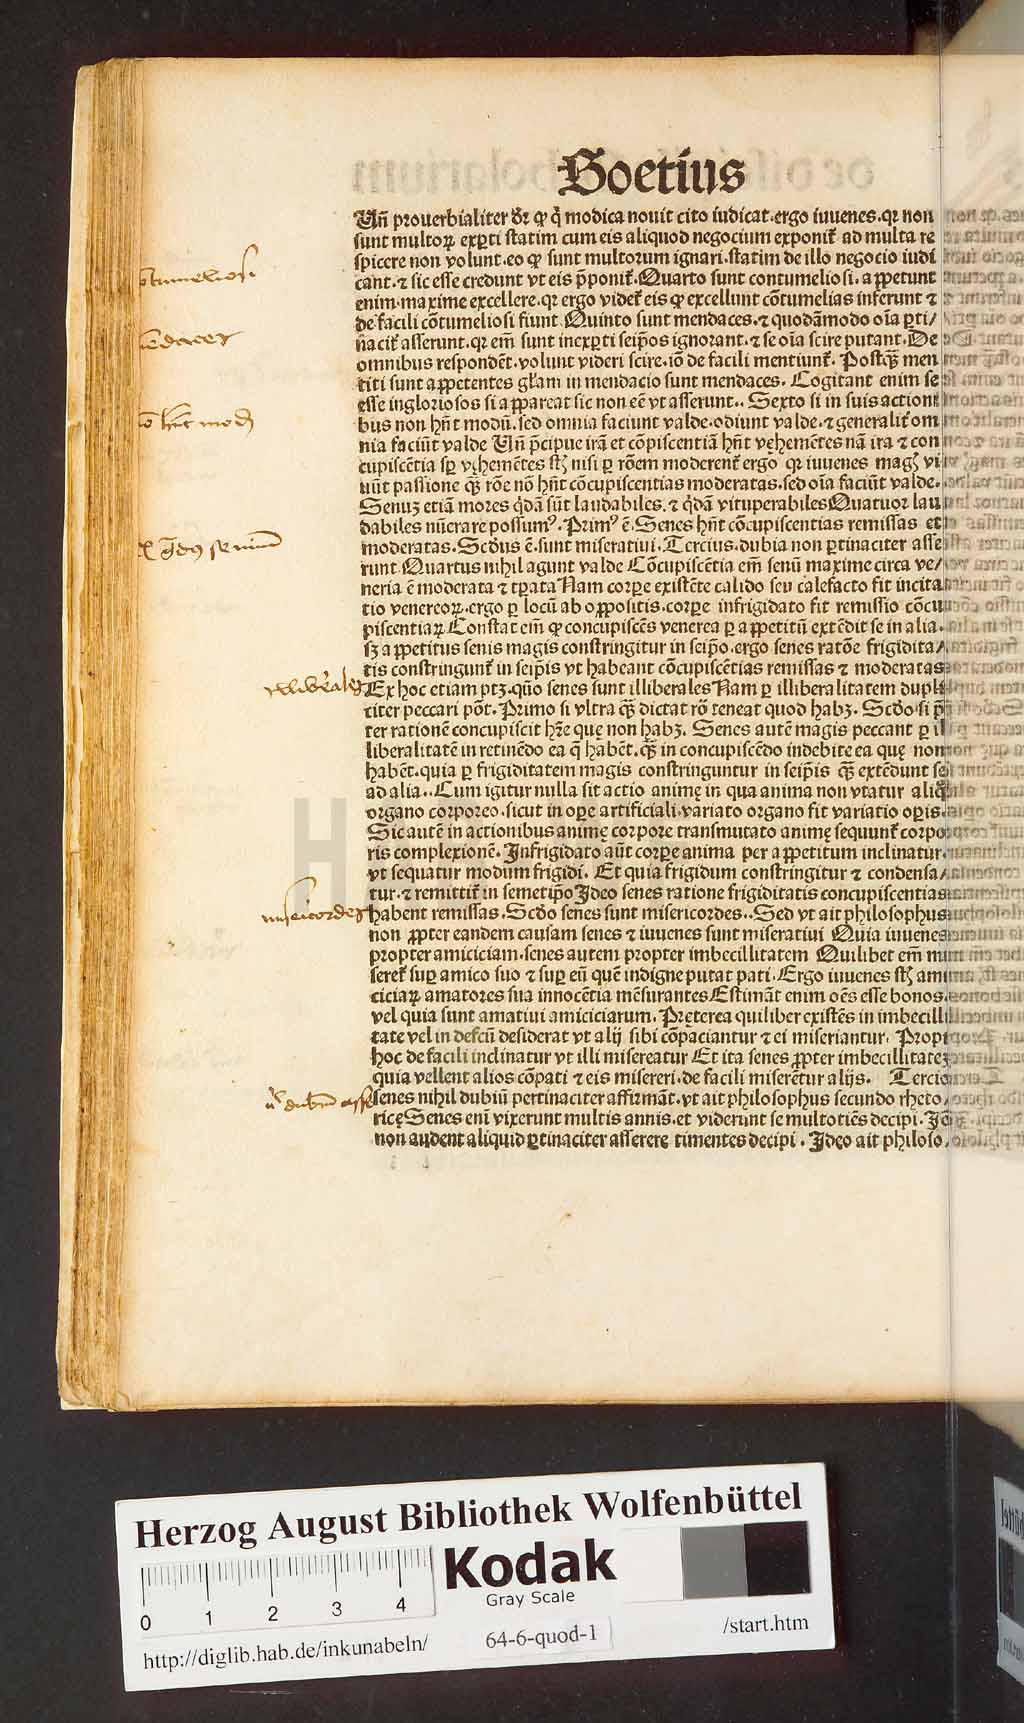 Boetius
Uñ prouerbialiter dr̄ ꝙ q̄ modica nouit cito iudicat.ergo iuuenes.qꝛ non
sunt multoꝝ exꝑti statim cum eis aliquod negocium exponit̄ ad multa re
spicere non volunt.eo ꝙ sunt multorum ignari.statim de illo negocio iudi
cant.⁊ sic esse credunt vt eis p̄ponit̄.Quarto sunt contumeliosi.appetunt
enim maxime excellere.qꝛ ergo videt̄ eis ꝙ excellunt cōtumelias inferunt ⁊
de facili cōtumeliosi fiunt.Quinto sunt mendaces.⁊ quodāmodo oīa ꝑti/
nacit̄ asserunt.qꝛ em̄ sunt inexꝑti seip̄os ignorant.⁊ se oīa scire putant.De
omnibus respondēt.volunt videri scire.iō de facili mentiunt̄. Postq̄ꝫ men
titi sunt appetentes gl̄am in mendacio sunt mendaces. Cogitant enim se
esse ingloriosos si appareat sic non eē vt asserunt.. Sexto si in suis actioni
bus non hn̄t modū.sed omnia faciunt valde.odiunt valde.⁊ generalit̄ om
nia faciūt valde Uñ p̄cipue irā et cōpiscentiā hn̄t vęhemētes nā ira ⁊ con
cupiscētia sꝑ vęhemētes st̄ nisi ꝑ rōem moderent̄ ergo qꝛ iuuenes maḡ vi
uūt passione q̄ꝫ rōe nō hn̄t cōcupiscentias moderatas.sed oīa faciūt valde.
Senuꝫ etiā mores q̄dā sūt laudabiles.⁊ q̄dā vituperabiles Quatuor lau
dabiles nūerare possumꝰ.Primꝰ ē.Senes hn̄t cōcupiscentias remissas et
moderatas.Scd̄us ē.sunt miseratiui.Tercius.dubia non ꝑtinaciter asse
runt.Quartus nihil agunt valde Cōcupiscētia em̄ senū maxime circa ve/
neria ē moderata ⁊ tp̄ata Nam corꝑe existēte calido seu calefacto fit incita
tio venereoꝝ.ergo ꝑ locū ab oppositis.corꝑe infrigidato fit remissio cōcu
piscentiaꝝ Constat em̄ ꝙ concupiscēs venerea ꝑ appetitū extēdit se in alia.
sꝫ appetitus senis magis constringitur in seip̄o.ergo senes ratōe frigidita/
tis constringunt̄ in seip̄is vt habeant cōcupiscētias remissas ⁊ moderatas
illiberales
Ex hoc etiam ptꝫ.quō senes sunt illiberales Nam ꝑ illiberalitatem dupli
citer peccari pōt.Primo si vltra q̄ꝫ dictat rō teneat quod habꝫ. Scd̄o si p̄
ter rationē concupiscit hr̄e quę non habꝫ. Senes autē magis peccant ꝑ il
liberalitatē in retinēdo ea q̄ habēt.q̄ꝫ in concupiscēdo indebite ea quę non
habēt.quia ꝑ frigiditatem magis constringuntur in seip̄is q̄ꝫ extēdunt se
ad alia..Cum igitur nulla sit actio animę in qua anima non vtatur aliq̄
organo corporeo.sicut in oꝑe artificiali.variato organo fit variatio oꝑis.
Sic autē in actionibus animę corpore transmutato animę sequunt̄ corpo
ris complexionē. Infrigidato aūt corꝑe anima per appetitum inclinatur.
vt sequatur modum frigidi. Et quia frigidum constringitur ⁊ condensa/
tur.⁊ remittit̄ in semetip̄o Ideo senes ratione frigiditatis concupiscentias
misericordes
habent remissas.Scd̄o senes sunt misericordes..Sed vt ait philosophus
non ꝓpter eandem causam senes ⁊ iuuenes sunt miseratiui Quia iuuenes
propter amiciciam.senes autem propter imbecillitatem Quilibet em̄ mi
seret̄ suꝑ amico suo ⁊ suꝑ eū quē indigne putat pati.Ergo iuuenes st̄ ami
ciciaꝝ amatores sua innocētia mēsurantes Estimāt enim oēs esse bonos.
vel quia sunt amatiui amiciciarum. Pręterea quilibet existēs in imbecilli
tate vel in defcū desiderat vt alij sibi cōpaciantur ⁊ ei miseriantur. Propt
hoc de facili inclinatur vt illi misereatur Et ita senes ꝓpter imbecillitateꝫ
quia vellent alios cōpati ⁊ eis misereri.de facili miserētur alijs. Tercio
senes nihil dubiū pertinaciter affirmāt.vt ait philosophus secundo rheto
ricę Senes enī vixerunt multis annis.et viderunt se multotiēs decipi.Iō
non audent aliquid ꝑtinaciter asserere timentes decipi. Ideo ait philoso
Herzog August Bibliothek Wolfenbüttel
Kodak
Gray Scale
0 1 2 3 4
http://diglib.hab.de/inkunabeln/
64-6-quod-1
/start.htm